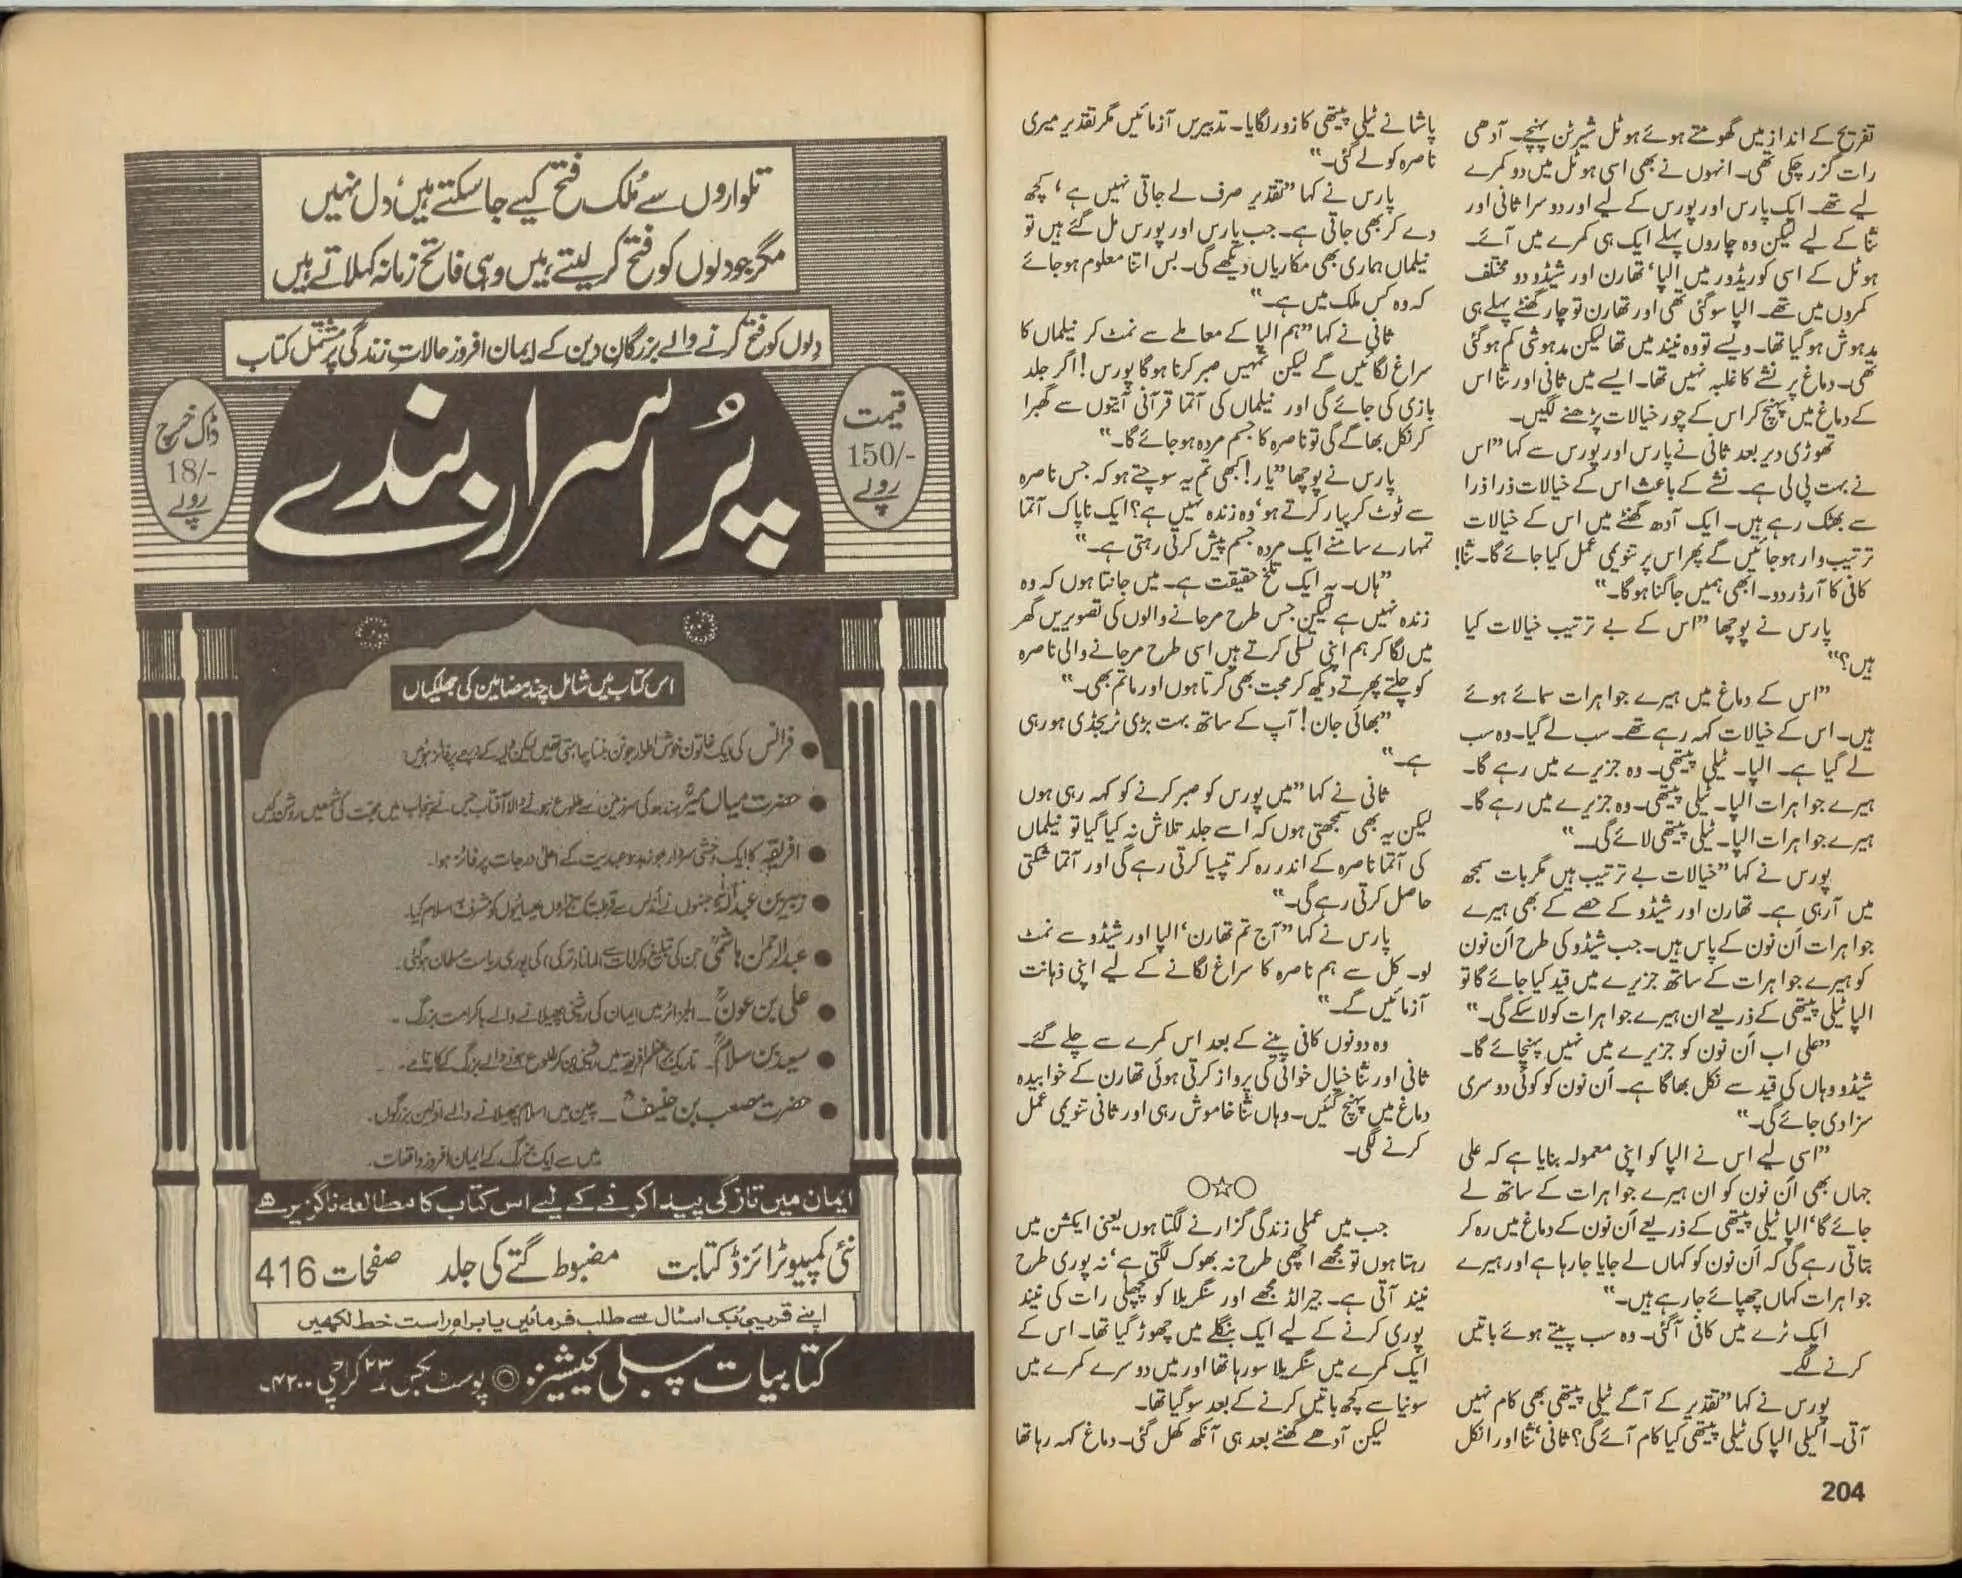 تفریح کے انداز میں گھومتے ہوئے ہوٹل شیرٹن پہنچے۔ آدھی
رات گزر چکی تھی۔ انہوں نے بھی اسی ہوٹل میں دو کمرے
لیے تھے۔ ایک پارس اور پورس کے لیے اور دوسرا ثانی اور
ثنا کے لیے لیکن وہ چاروں پہلے ایک ہی کمرے میں آئے۔
ہوٹل کے اسی کوریڈور میں الپا' تھارن اور شیڈو دو مختلف
کمروں میں تھے۔ الپا سو گئی تھی اور تھارن تو چار گھنٹے پہلے ہی
مدہوش ہو گیا تھا۔ ویسے تو وہ نیند میں تھا لیکن مدہوشی کم ہو گئی
تھی۔ دماغ پر نشے کا غلبہ نہیں تھا۔ ایسے میں ثانی اور ثنا اس
کے دماغ میں پہنچ کر اس کے چور خیالات پڑھنے لگیں۔
تھوڑی دیر بعد ثانی نے پارس اور پورس سے کہا "اس
نے بہت پی لی ہے۔ نشے کے باعث اس کے خیالات ذرا ذرا
سے بھٹک رہے ہیں۔ ایک آدھ گھنٹے میں اس کے خیالات
ترتیب وار ہو جائیں گے پھر اس پر تنویمی عمل کیا جائے گا۔ ثنا!
کافی کا آرڈر دو۔ ابھی ہمیں جاگنا ہوگا۔"
پارس نے پوچھا "اس کے بے ترتیب خیالات کیا
ہیں؟"
"اس کے دماغ میں ہیرے جواہرات سمائے ہوئے
ہیں۔ اس کے خیالات کہہ رہے تھے۔ سب لے گیا۔ وہ سب
لے گیا ہے۔ الپا۔ ٹیلی پیتھی۔ وہ جزیرے میں رہے گا۔
ہیرے جواہرات الپا۔ ٹیلی پیتھی۔ وہ جزیرے میں رہے گا۔
ہیرے جواہرات الپا۔ ٹیلی پیتھی لائے گی۔۔۔"
پورس نے کہا "خیالات بے ترتیب ہیں مگر بات سمجھ
میں آ رہی ہے۔ تھارن اور شیڈو کے حصے کے بھی ہیرے
جواہرات اَن نون کے پاس ہیں۔ جب شیڈو کی طرح اَن نون
کو ہیرے جواہرات کے ساتھ جزیرے میں قید کیا جائے گا تو
الپا ٹیلی پیتھی کے ذریعے ان ہیرے جواہرات کو لا سکے گی۔"
"علی اب اَن نون کو جزیرے میں نہیں پہنچائے گا۔
شیڈو وہاں کی قید سے نکل بھاگا ہے۔ اَن نون کو کوئی دوسری
سزا دی جائے گی۔"
"اسی لیے اس نے الپا کو اپنی معمولہ بنایا ہے کہ علی
جہاں بھی اَن نون کو ان ہیرے جواہرات کے ساتھ لے
جائے گا' الپا ٹیلی پیتھی کے ذریعے اَن نون کے دماغ میں رہ کر
بتاتی رہے گی کہ اَن نون کو کہاں لے جایا جا رہا ہے اور ہیرے
جواہرات کہاں چھپائے جا رہے ہیں۔"
ایک ٹرے میں کافی آ گئی۔ وہ سب پیتے ہوئے باتیں
کرنے لگے۔
پورس نے کہا "تقدیر کے آگے ٹیلی پیتھی بھی کام نہیں
آتی۔ اکیلی الپا کی ٹیلی پیتھی کیا کام آئے گی؟ ثانی' ثنا اور انکل
پاشا نے ٹیلی پیتھی کا زور لگایا۔ تدبیریں آزمائیں مگر تقدیر میری
ناصرہ کو لے گئی۔"
پارس نے کہا "تقدیر صرف لے جاتی نہیں ہے' کچھ
دے کر بھی جاتی ہے۔ جب پارس اور پورس مل گئے ہیں تو
نیلماں ہماری بھی مکاریاں دیکھے گی۔ بس اتنا معلوم ہو جائے
کہ وہ کس ملک میں ہے۔"
ثانی نے کہا "ہم الپا کے معاملے سے نمٹ کر نیلماں کا
سراغ لگائیں گے لیکن تمہیں صبر کرنا ہوگا پورس! اگر جلد
بازی کی جائے گی اور نیلماں کی آتما قرآنی آیتوں سے گھبرا
کر نکل بھاگے گی تو ناصرہ کا جسم مردہ ہو جائے گا۔"
پارس نے پوچھا "یار! کبھی تم یہ سوچتے ہو کہ جس ناصرہ
سے ٹوٹ کر پیار کرتے ہو' وہ زندہ نہیں ہے؟ ایک ناپاک آتما
تمہارے سامنے ایک مردہ جسم پیش کرتی رہتی ہے۔"
"ہاں۔ یہ ایک تلخ حقیقت ہے۔ میں جانتا ہوں کہ وہ
زندہ نہیں ہے لیکن جس طرح مرجانے والوں کی تصویریں گھر
میں لگا کر ہم اپنی تسلی کرتے ہیں اسی طرح مرجانے والی ناصرہ
کو چلتے پھرتے دیکھ کر محبت بھی کرتا ہوں اور ماتم بھی۔"
"بھائی جان! آپ کے ساتھ بہت بڑی ٹریجڈی ہو رہی
ہے۔"
ثانی نے کہا "میں پورس کو صبر کرنے کو کہہ رہی ہوں
لیکن یہ بھی سمجھتی ہوں کہ اسے جلد تلاش نہ کیا گیا تو نیلماں
کی آتما ناصرہ کے اندر رہ کر تپسیا کرتی رہے گی اور آتما شکتی
حاصل کرتی رہے گی۔"
پارس نے کہا "آج تم تھارن' الپا اور شیڈو سے نمٹ
لو۔ کل سے ہم ناصرہ کا سراغ لگانے کے لیے اپنی ذہانت
آزمائیں گے۔"
وہ دونوں کافی پینے کے بعد اس کمرے سے چلے گئے۔
ثانی اور ثنا خیال خوانی کی پرواز کرتی ہوئی تھارن کے خوابیدہ
دماغ میں پہنچ گئیں۔ وہاں ثنا خاموش رہی اور ثانی تنویمی عمل
کرنے لگی۔
○☆○
جب میں عملی زندگی گزارنے لگتا ہوں یعنی ایکشن میں
رہتا ہوں تو مجھے اچھی طرح نہ بھوک لگتی ہے' نہ پوری طرح
نیند آتی ہے۔ جیرالڈ مجھے اور سنگریلا کو پچھلی رات کی نیند
پوری کرنے کے لیے ایک بنگلے میں چھوڑ گیا تھا۔ اس کے
ایک کمرے میں سنگریلا سو رہا تھا اور میں دوسرے کمرے میں
سونیا سے کچھ باتیں کرنے کے بعد سو گیا تھا۔
لیکن آدھے گھنٹے بعد ہی آنکھ کھل گئی۔ دماغ کہہ رہا تھا
204
تلواروں سے مُلک فتح کیے جاسکتے ہیں' دل نہیں
مگر جو دلوں کو فتح کر لیتے ہیں وہی فاتح زمانہ کہلاتے ہیں
دلوں کو فتح کرنے والے بزرگانِ دین کے ایمان افروز حالاتِ زندگی پر مشتمل کتاب
قیمت
150/-
روپے
پُراسرار بندے
ڈاک خرچ
18/-
روپے
اس کتاب میں شامل چند مضامین کی جھلکیاں
● فرانس کی ایک خاتون خوش اطوار جو نن بننا چاہتی تھیں لیکن ولیہ کے درجے پر فائز ہوئیں
● حضرت میاں میرؒ سندھ کی سرزمین سے طلوع ہونے والا آفتاب جس نے پنجاب میں محبت کی شمعیں روشن کیں
● افریقہ کا ایک وحشی سردار جو زہد و عبدیت کے اعلیٰ درجات پر فائز ہوا۔
● عبدالرحمٰن ہاشمیؒ جن کی تبلیغ و کرامات سے المانا (ترکی) کی پوری ریاست مسلمان ہو گئی۔
● علی بن عونؒ ۔ الجزائر میں ایمان کی روشنی پھیلانے والے باکرامت بزرگ۔
● حضرت مصعب بن حنیفؒ ۔ چین میں اسلام پھیلانے والے اولین بزرگوں
میں سے ایک بزرگ کے ایمان افروز واقعات۔
ایمان میں تازگی پیدا کرنے کے لیے اس کتاب کا مطالعہ ناگزیر ہے
نئی کمپیوٹرائزڈ کتابت مضبوط گتے کی جلد صفحات 416
اپنے قریبی بُک اسٹال سے طلب فرمائیں یا براہِ راست خط لکھیں
کتابیات پبلی کیشنز ○ پوسٹ بکس ۲۳ کراچی ۷۴۲۰۰